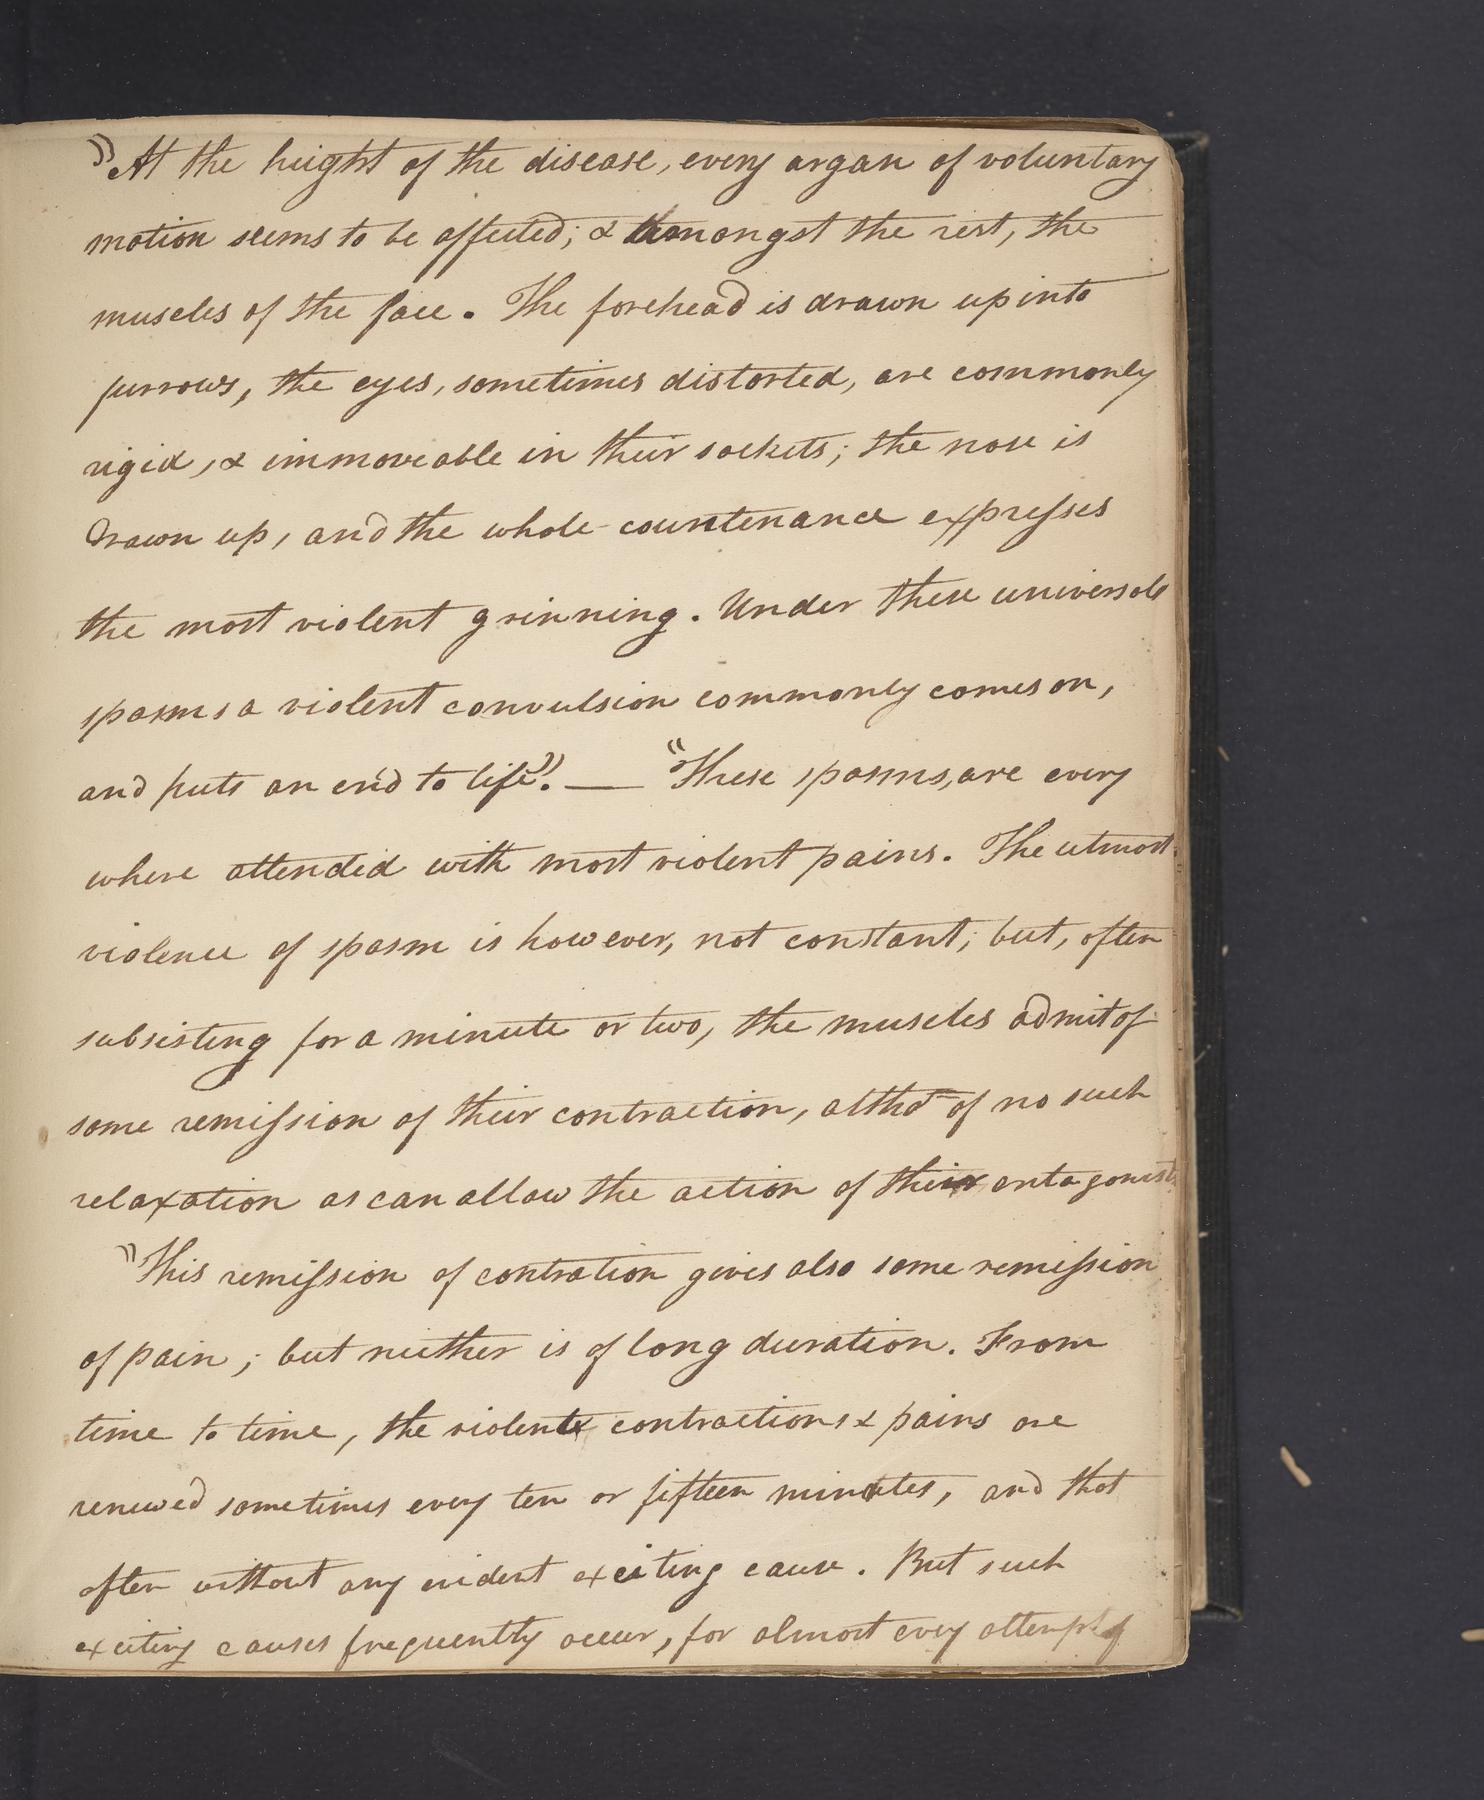 "At the height of the disease, every organ of voluntary
motion seems to be affected; & amongst the rest, the
muscles of the face. The forehead is drawn up into
furrows, the eyes, sometimes distorted, are commonly
rigid, & immoveable in their sockets; the nose is
drawn up, and the whole countenance expresses
the most violent grinning. Under these universal
spasms a violent convulsion commonly comes on,
and puts an end to life". — "These spasms, are every
where attended with most violent pains. The utmost
violence of spasm is however, not constant; but, often
subsisting for a minute or two, the muscles admit of
some remission of their contraction, altho' of no such
relaxation as can allow the action of their antagonist
"This remission of contration gives also some remission
of pain; but neither is of long duration. From
time to time, the violent contractions & pains are
renewed sometimes every ten or fifteen minutes, and that
often without any evident exciting cause. But such
exciting causes frequently occur, for almost every attempt of